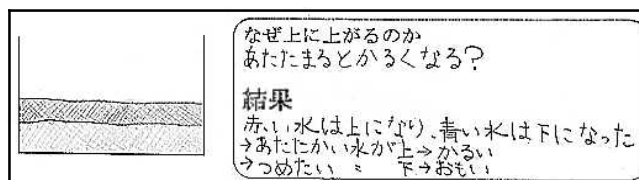 なぜ上に上がるのか
あたたまるとかるくなる?
結果
赤い水は上になり、青い水は下になった
→あたたかい水が上→かるい
→つめたい 〃 下→おもい